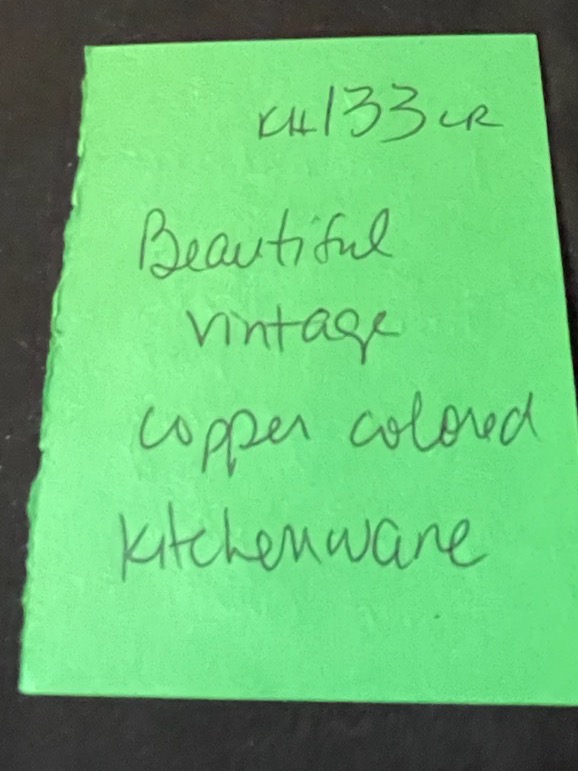 KH133CR
Beautiful
vintage
copper colored
kitchenware